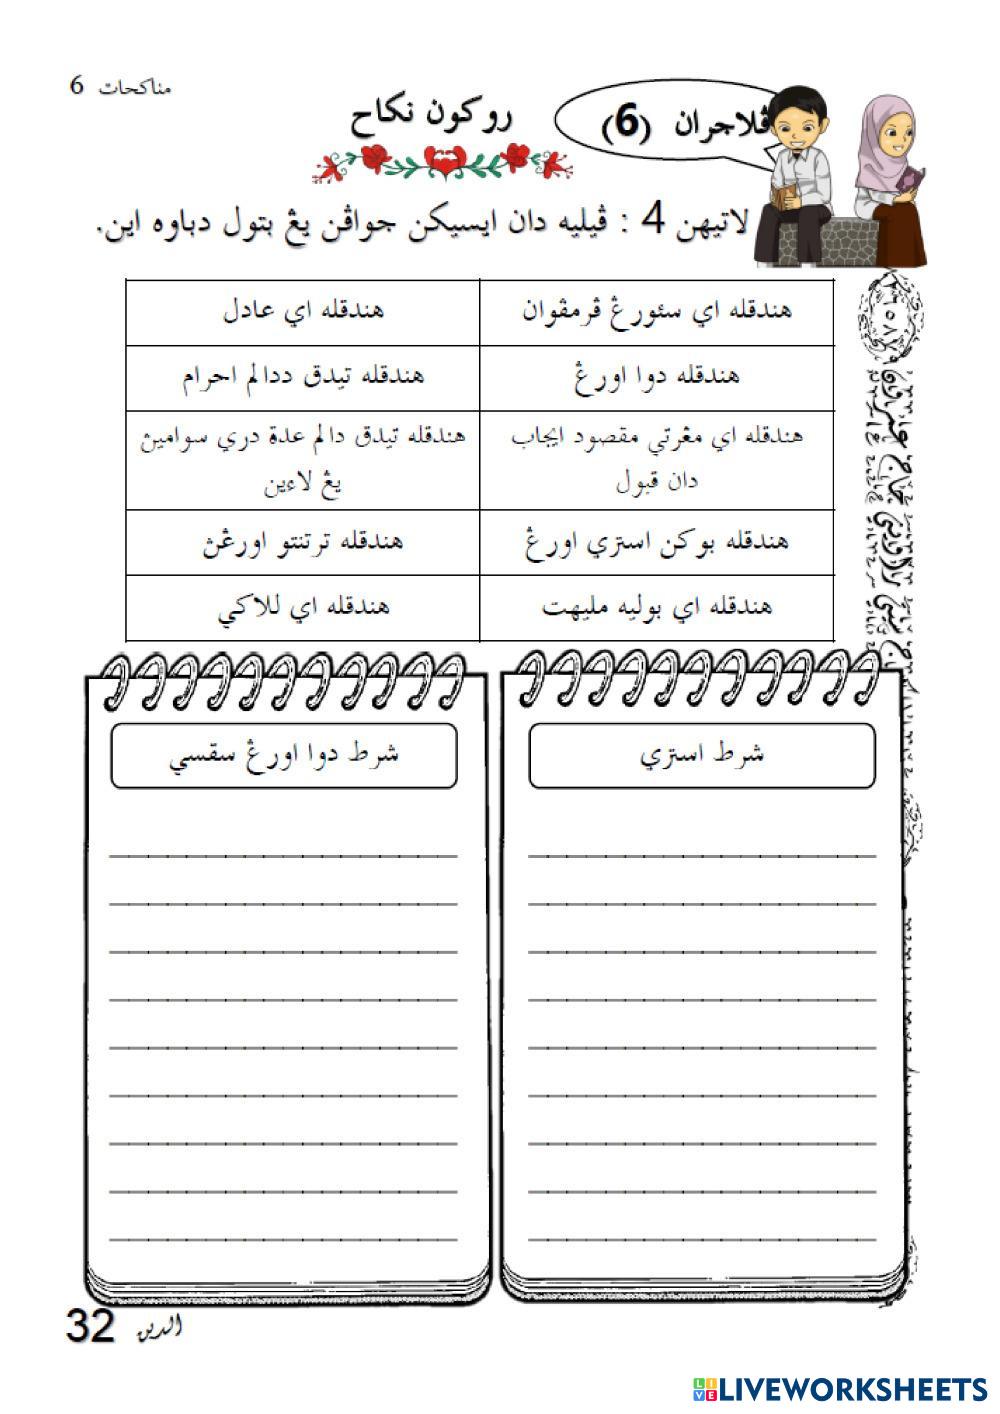 مناكحات 6
ڤلاجرن (6)
روكون نكاح
لاتيهن 4 : ڤيليه دان ايسيكن جواڤن يڠ بتول دباوه اين.
هندقله اي سئورڠ ڤرمڤوان
هندقله اي عادل
هندقله دوا اورڠ
هندقله تيدق ددالم احرام
هندقله اي مڠرتي مقصود ايجاب
دان قبول
هندقله تيدق دالم عدة دري سوامين
يڠ لاءين
هندقله بوكن استري اورڠ
هندقله ترتنتو اورڠڽ
هندقله اي بوليه مليهت
هندقله اي للاكي
شرط استري
شرط دوا اورڠ سقسي
الدين 32
LIVEWORKSHEETS